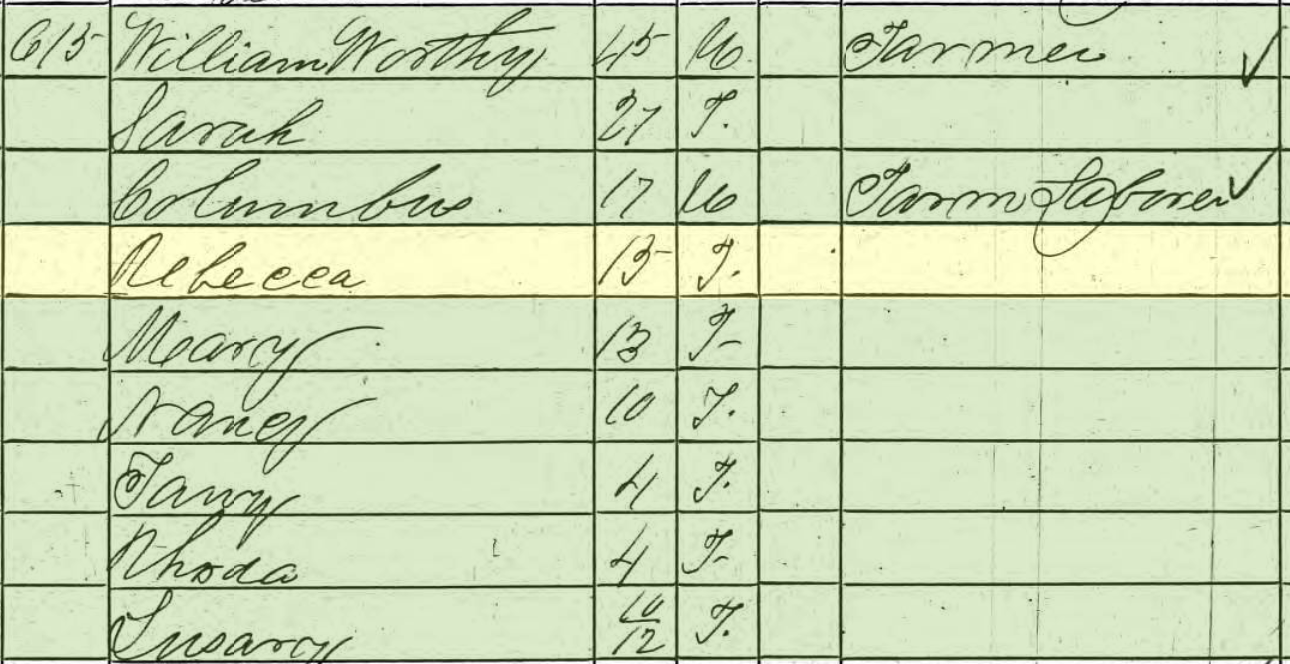 615 William Worthy 45 M Farmer ✓
Sarah 27 F.
Columbus 17 M Farm Laborer ✓
Rebecca 15 F.
Mary 13 F
Nancy 10 F.
4 F.
Rhoda 4 F
10/12 F.